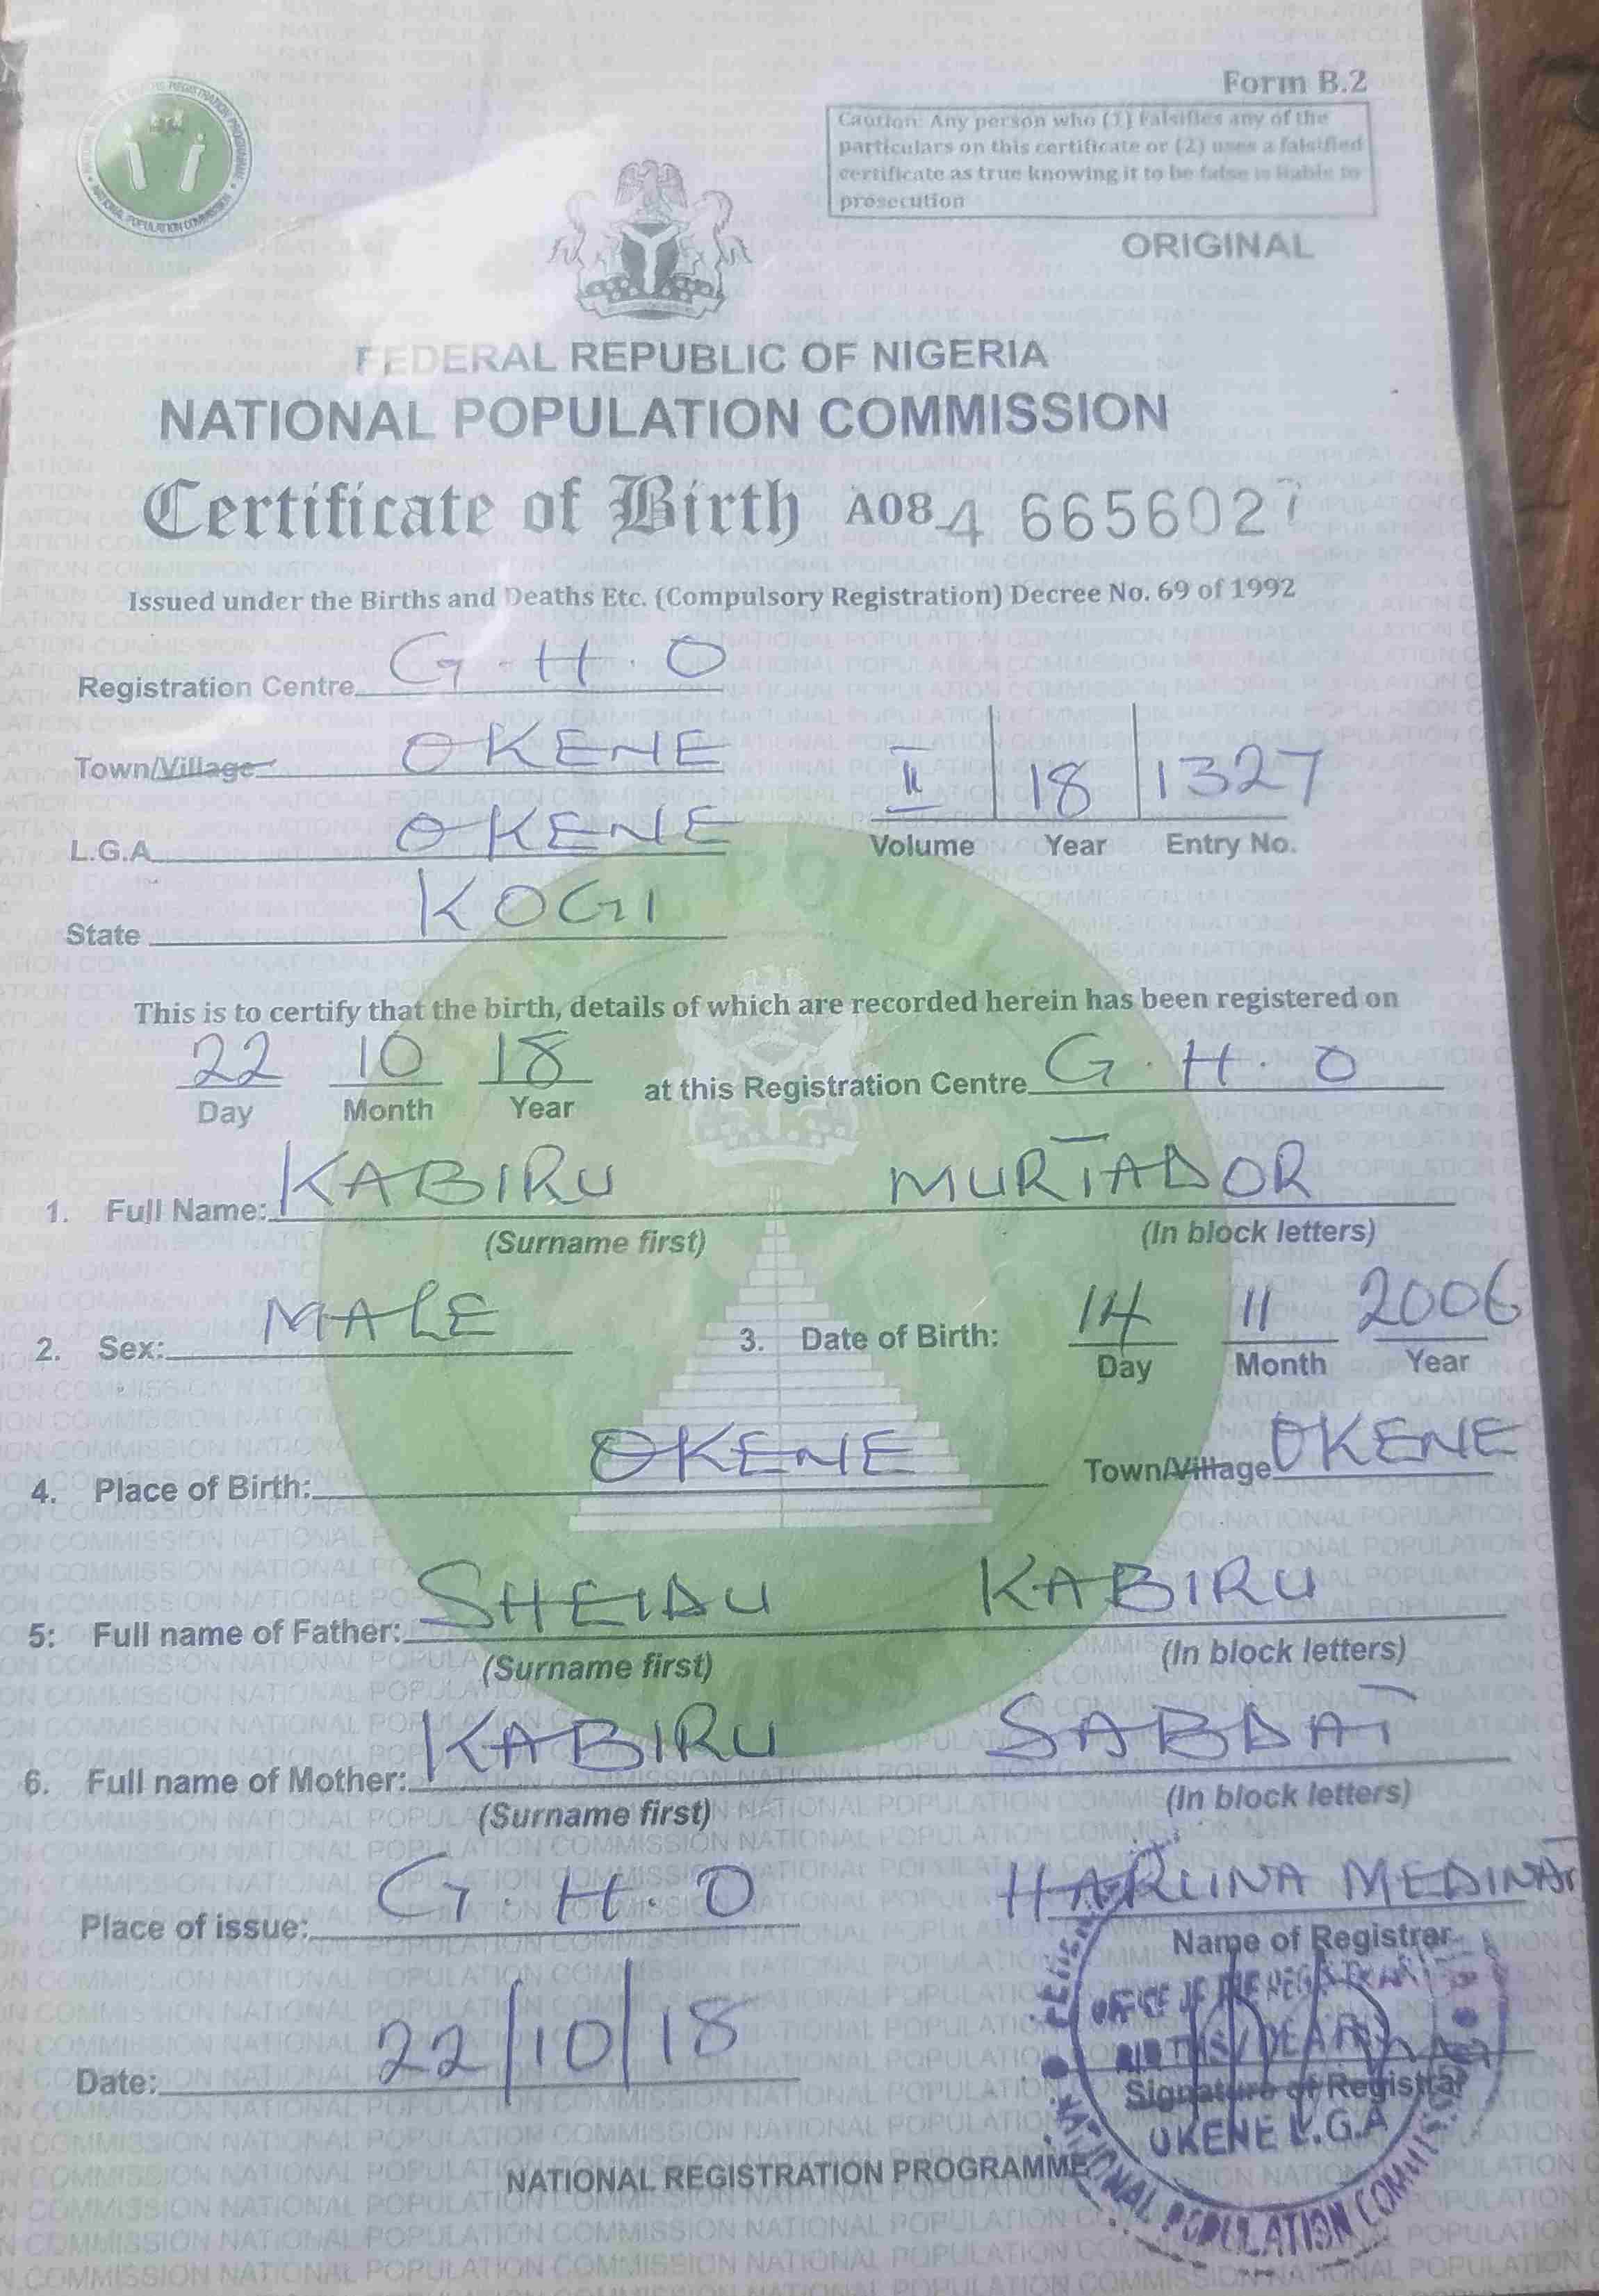 Form B.2
Caution: Any person who (1) falsifies any of the
particulars on this certificate or (2) uses a falsified
certificate as true knowing it to be false is liable to
prosecution
ORIGINAL
FEDERAL REPUBLIC OF NIGERIA
NATIONAL POPULATION COMMISSION
Certificate of Birth A084 6656027
Issued under the Births and Deaths Etc. (Compulsory Registration) Decree No. 69 of 1992
Registration Centre G.H.O
Town/Village OKENE
L.G.A OKENE
State KOGI
II 18 1327
Volume Year Entry No.
This is to certify that the birth, details of which are recorded herein has been registered on
22 10 18 at this Registration Centre G.H.O
Day Month Year
1. Full Name: KABIRU MURTADOR
(Surname first) (In block letters)
2. Sex: MALE 3. Date of Birth: 14 11 2006
Day Month Year
4. Place of Birth: OKENE Town/Village OKENE
5: Full name of Father: SHEIDU KABIRU
(Surname first) (In block letters)
6. Full name of Mother: KABIRU SABDAT
(Surname first) (In block letters)
Place of issue: G.H.O HARUNA MEDINAT
Name of Registrar
OFFICE OF THE REGISTRAR
BIRTHS/DEATHS
Date: 22/10/18
Signature of Registrar
OKENE L.G.A
NATIONAL POPULATION COMMISSION
NATIONAL REGISTRATION PROGRAMME